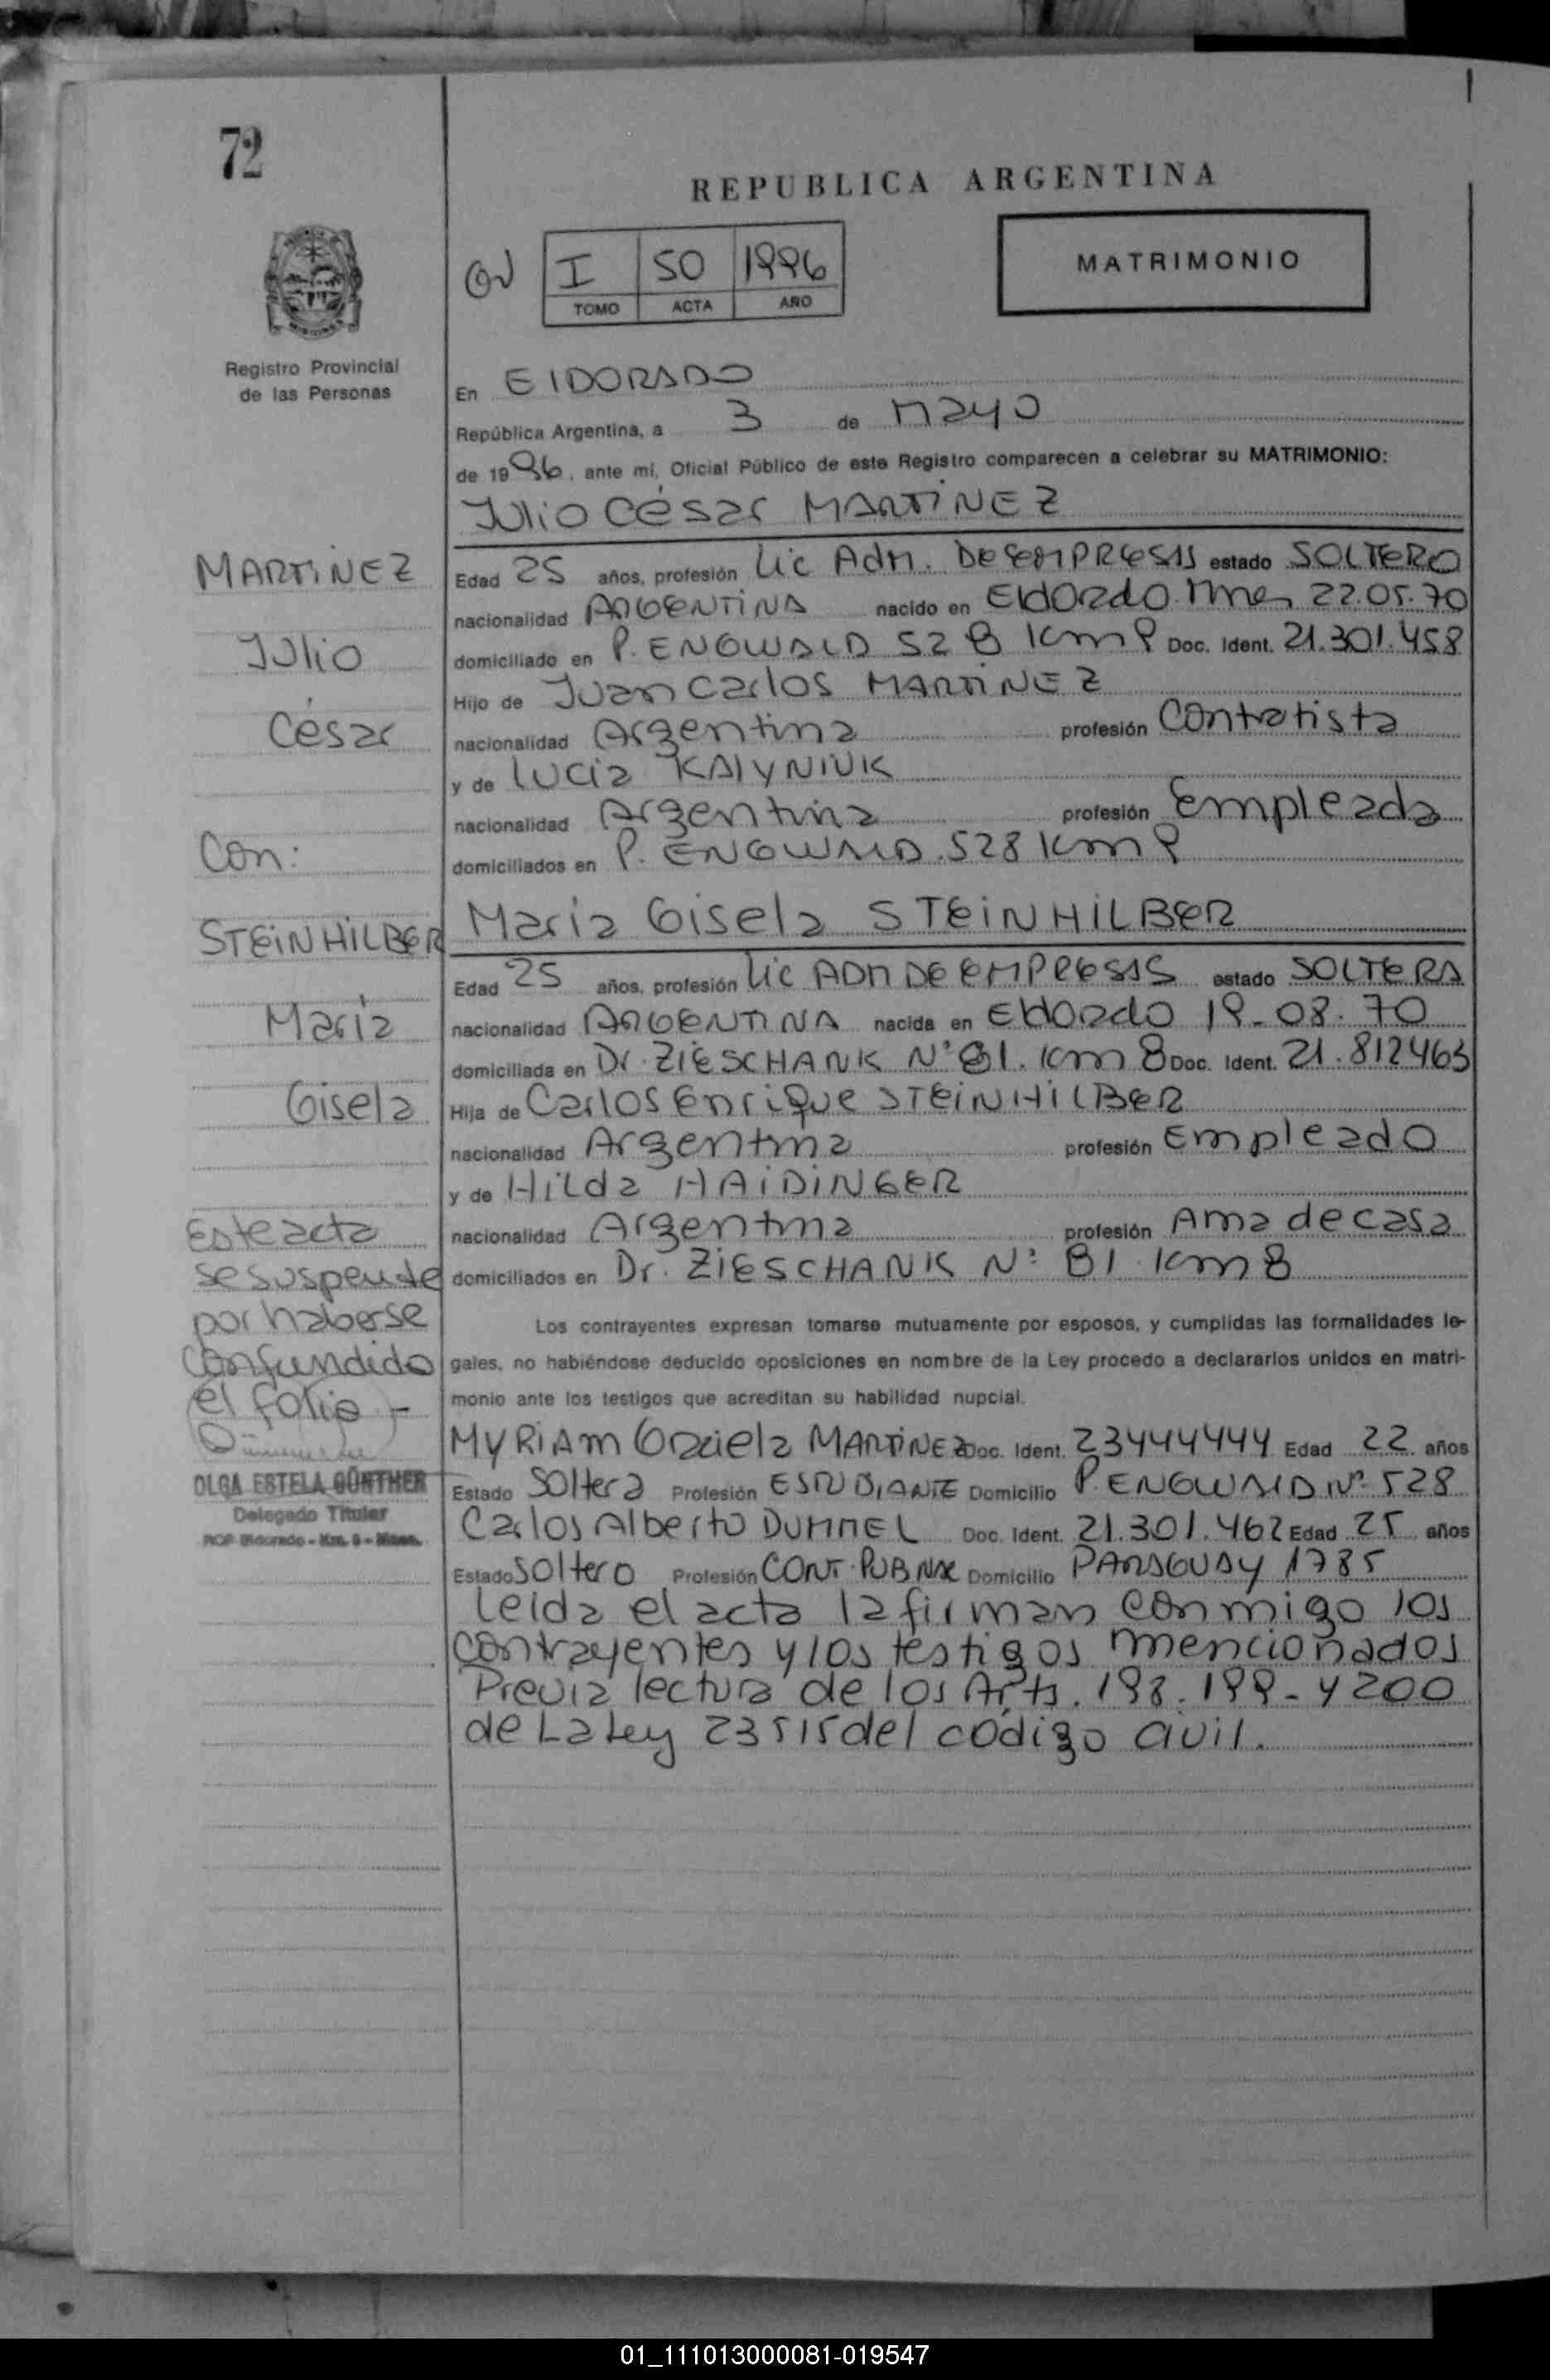 72
REPUBLICA ARGENTINA
I 50 1996
TOMO ACTA AÑO
MATRIMONIO
Registro Provincial
de las Personas
En ElDORADO
República Argentina, a 3 de Mayo
de 1996, ante mí, Oficial Público de este Registro comparecen a celebrar su MATRIMONIO:
Julio César MARTiNEZ
MARTiNEZ
Julio
César
Con:
STEiNHiLBER
Maria
Gisela
Edad 25 años, profesión Lic Adm. DE EMPRESAS estado SOLTERO
nacionalidad ARGENTiNA nacido en Eldorado Mnes 22.05.70
domiciliado en P. ENGWALD 528 Km 9 Doc. Ident. 21.301.458
Hijo de Juan Carlos MARTiNEZ
nacionalidad Argentina profesión Contratista
y de Lucia KAlyNiUK
nacionalidad Argentina profesión Empleada
domiciliados en P. ENGWALD 528 Km 9
Maria Gisela STEiNHiLBER
Edad 25 años, profesión Lic ADM DE EMPRESAS estado SOLTERA
nacionalidad ARGENTiNA nacida en Eldorado 19-08.70
domiciliada en Dr. ZiESCHANK N° 81. Km 8 Doc. Ident. 21.812463
Hija de Carlos Enrique STEiNHiLBER
nacionalidad Argentina profesión Empleado
y de Hilda HAiDiNGER
nacionalidad Argentina profesión Ama de casa
domiciliados en Dr. ZiESCHANK N° 81 Km 8
Este acta
se suspende
por haberse
confundido
el folio -
OLGA ESTELA GÜNTHER
Delegado Titular
RCP Eldorado - Km. 9 - Mnes.
Los contrayentes expresan tomarse mutuamente por esposos, y cumplidas las formalidades le-
gales, no habiéndose deducido oposiciones en nombre de la Ley procedo a declararlos unidos en matri-
monio ante los testigos que acreditan su habilidad nupcial.
MyRiAM Graciela MARTiNEZ Doc. Ident. 23444444 Edad 22 años
Estado Soltera Profesión ESTUDiANTE Domicilio P. ENGWALD N° 528
Carlos Alberto DUMMEL Doc. Ident. 21.301.462 Edad 25 años
Estado Soltero Profesión CONT. PUB NAC Domicilio PARAGUAY 1785
Leida el acta la firman conmigo los
contrayentes y los testigos mencionados
Previa lectura de los Arts. 198. 199 - y 200
de La Ley 23515 del código civil.
01_111013000081-019547